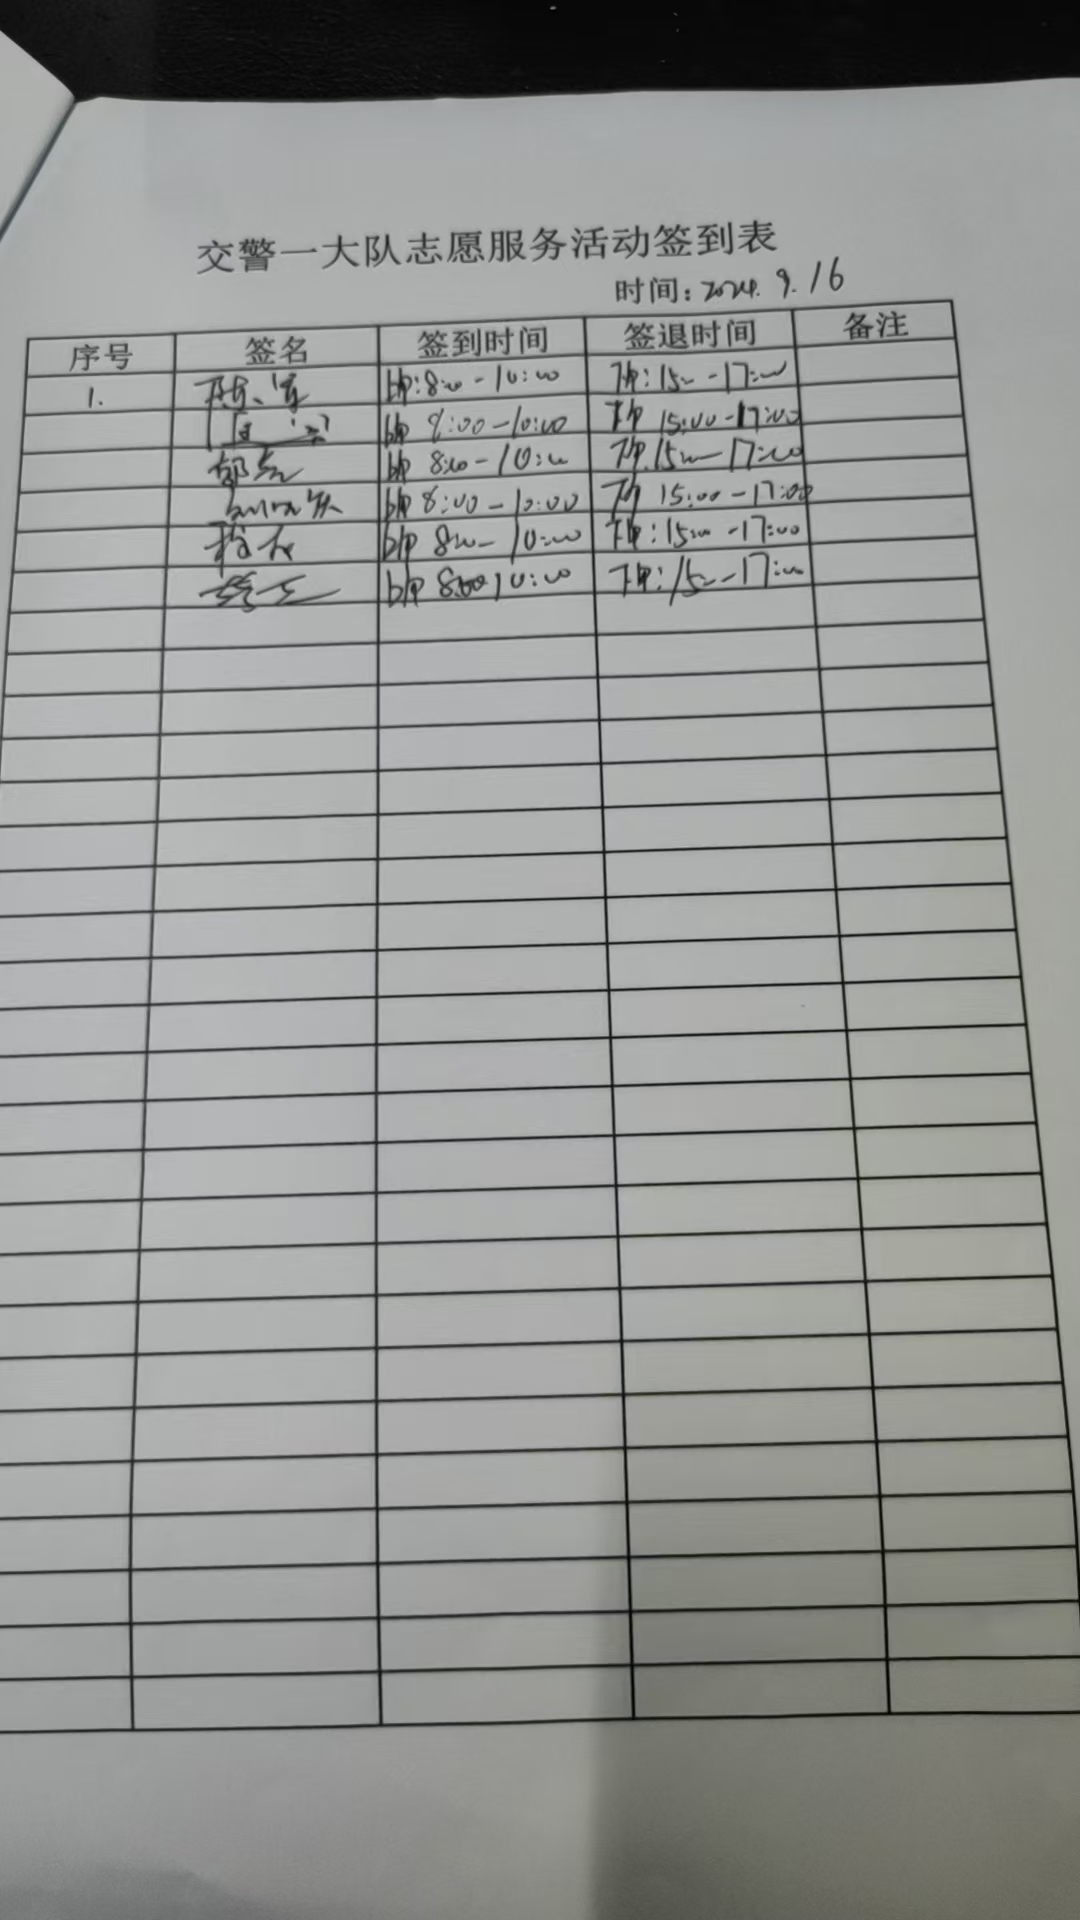 交警一大队志愿服务活动签到表
时间：2024.9.16
序号 签名 签到时间 签退时间 备注
1. 陈 上午:8:00-10:00 下午:15:00-17:00
上午 8:00-10:00 下午 15:00-17:00
上午 8:00-10:00 下午.15:00-17:00
上午 8:00-10:00 下午 15:00-17:00
上午 8:00-10:00 下午:15:00-17:00
上午 8:00-10:00 下午:15:00-17:00